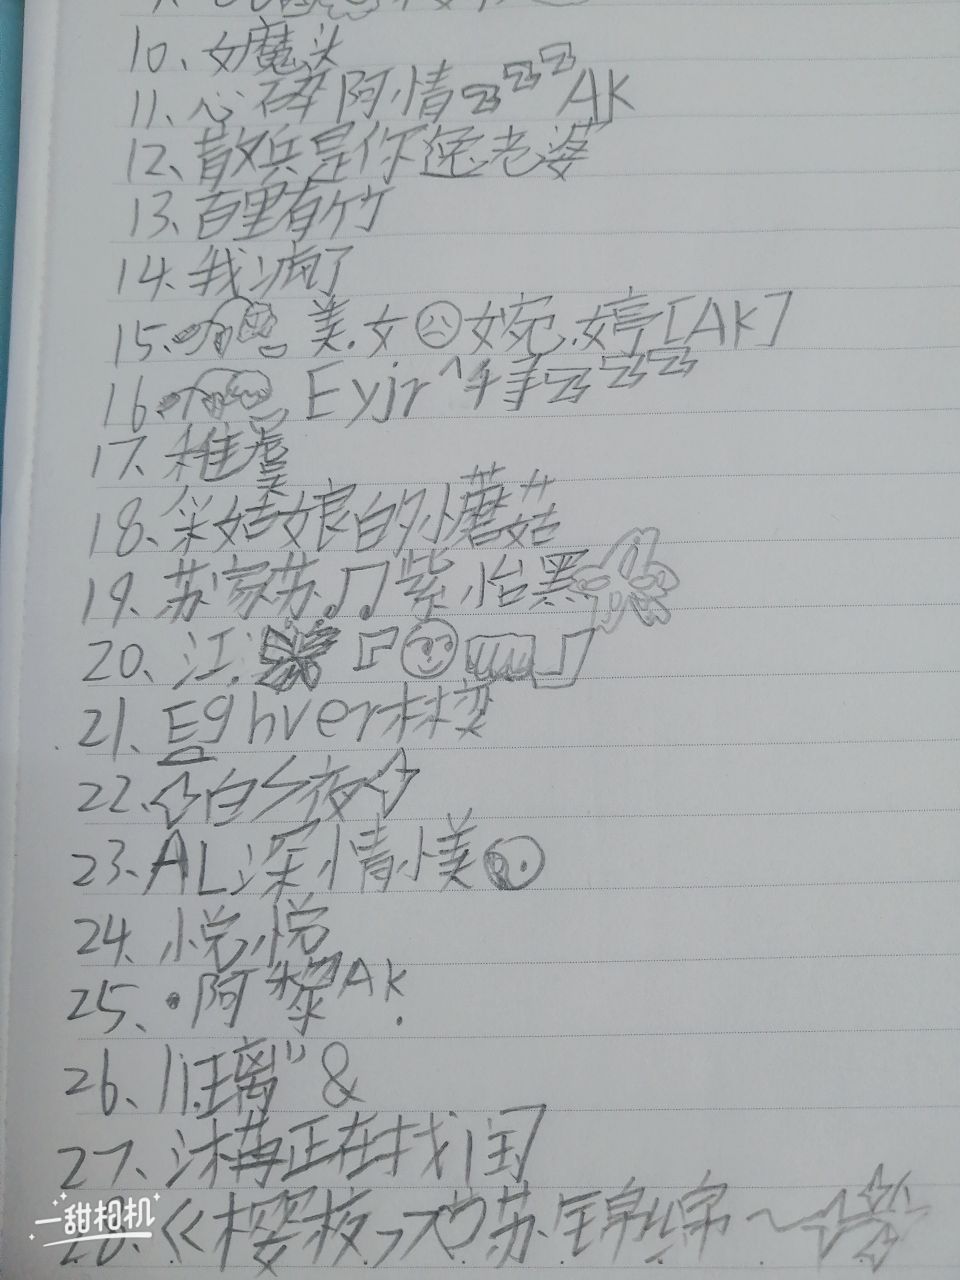 10、女魔头
11、心碎阿情zzzAK
12、散兵是你逸老婆
13、百里有竹
14、我疯了
15、美.女婉.婷[AK]
16、Eyjr^手手zzz
17、稚
18、采姑娘的小蘑菇
19、苏家苏♫紫怡黑
20、江
21、Eghver林
22、✧白夜✧
23、AL深情小美
24、悦悦
25、•阿黎AK.
26、璃"&
27、沐苒正在找闰
28、《樱桜苏锦绵~
一甜相机